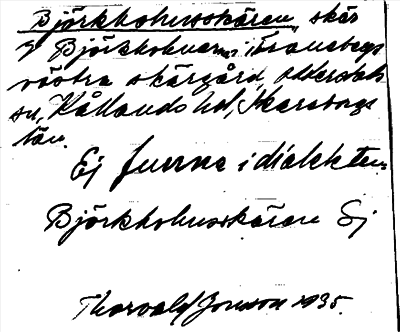 Björkholmsskären, skär
V Björkholmarna i Tranebergs
västra skärgård, Otterstads
sn, Kållands hd, Skaraborgs
län.
Ej funna i dialekten.
Björkholmsskären Ej
Thorvald Jonsson 1935.